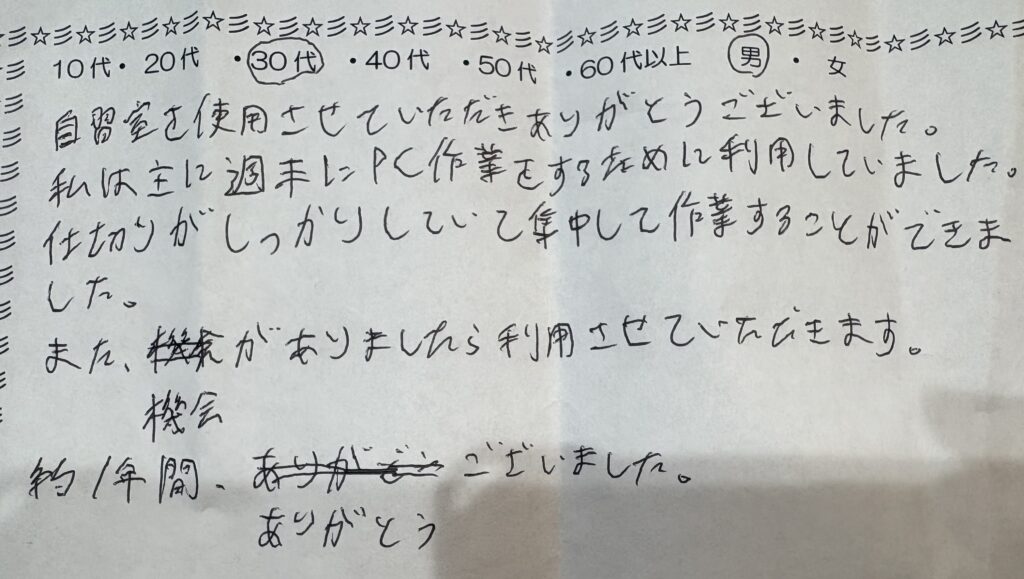 10代・20代・30代・40代・50代・60代以上 男・女
自習室を使用させていただきありがとうございました。
私は主に週末にPC作業をするために利用していました。
仕切りがしっかりしていて集中して作業することができま
した。
また、がありましたら利用させていただきます。
機会
約1年間、ありがどうございました。
ありがとう